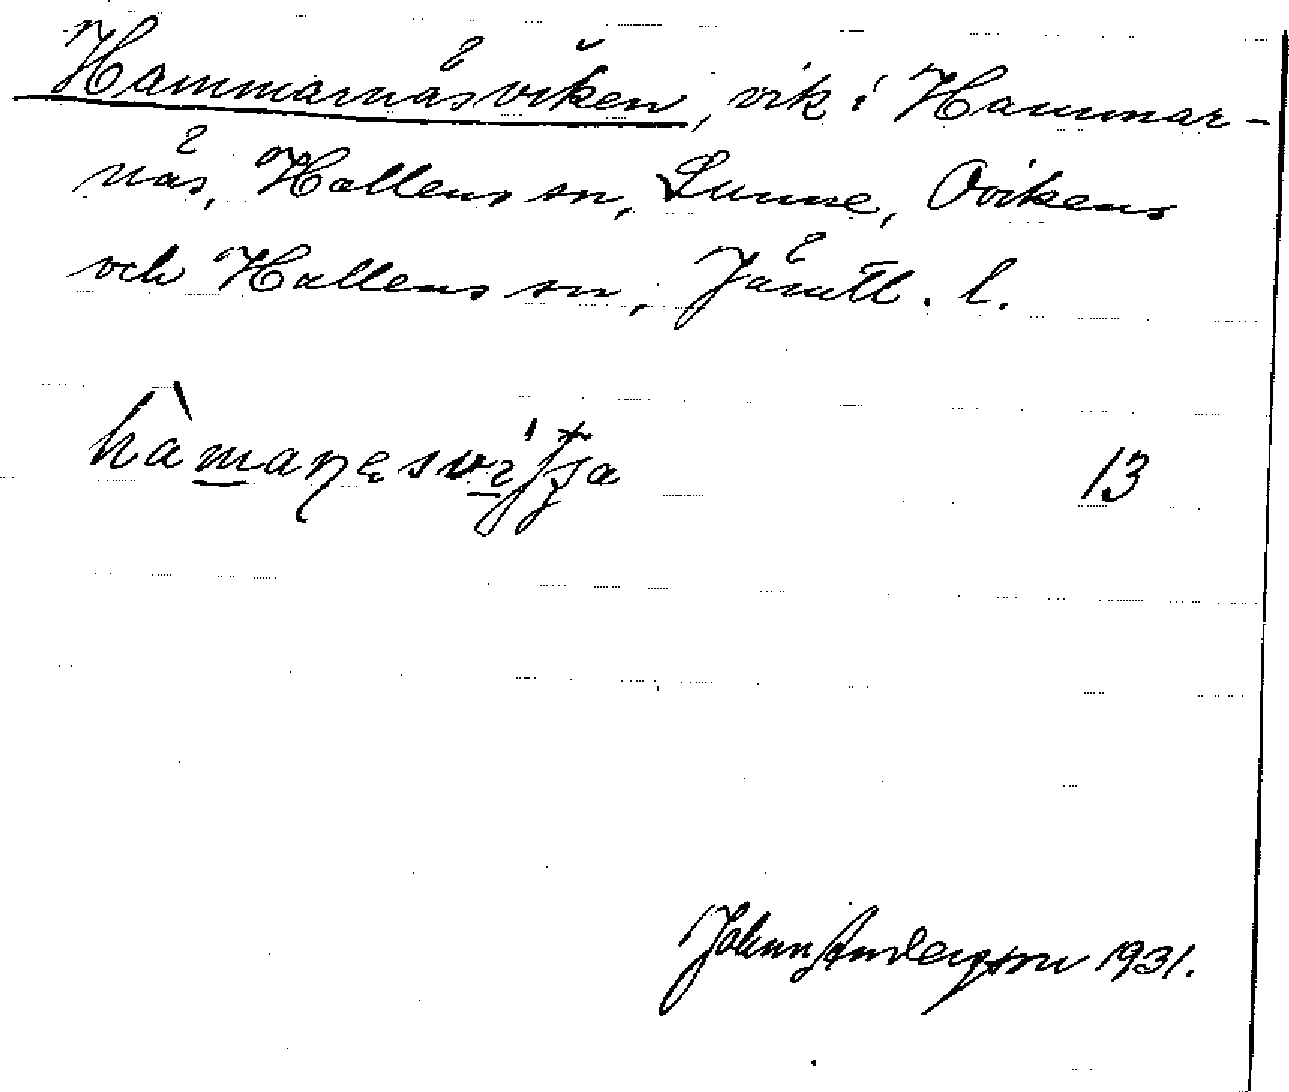 Hammarnäsviken, vik i Hammar-
näs, Hallens sn, Sunne, Ovikens
och Hallens sn, Jämtl. l.
13
Johan Andersson 1931.